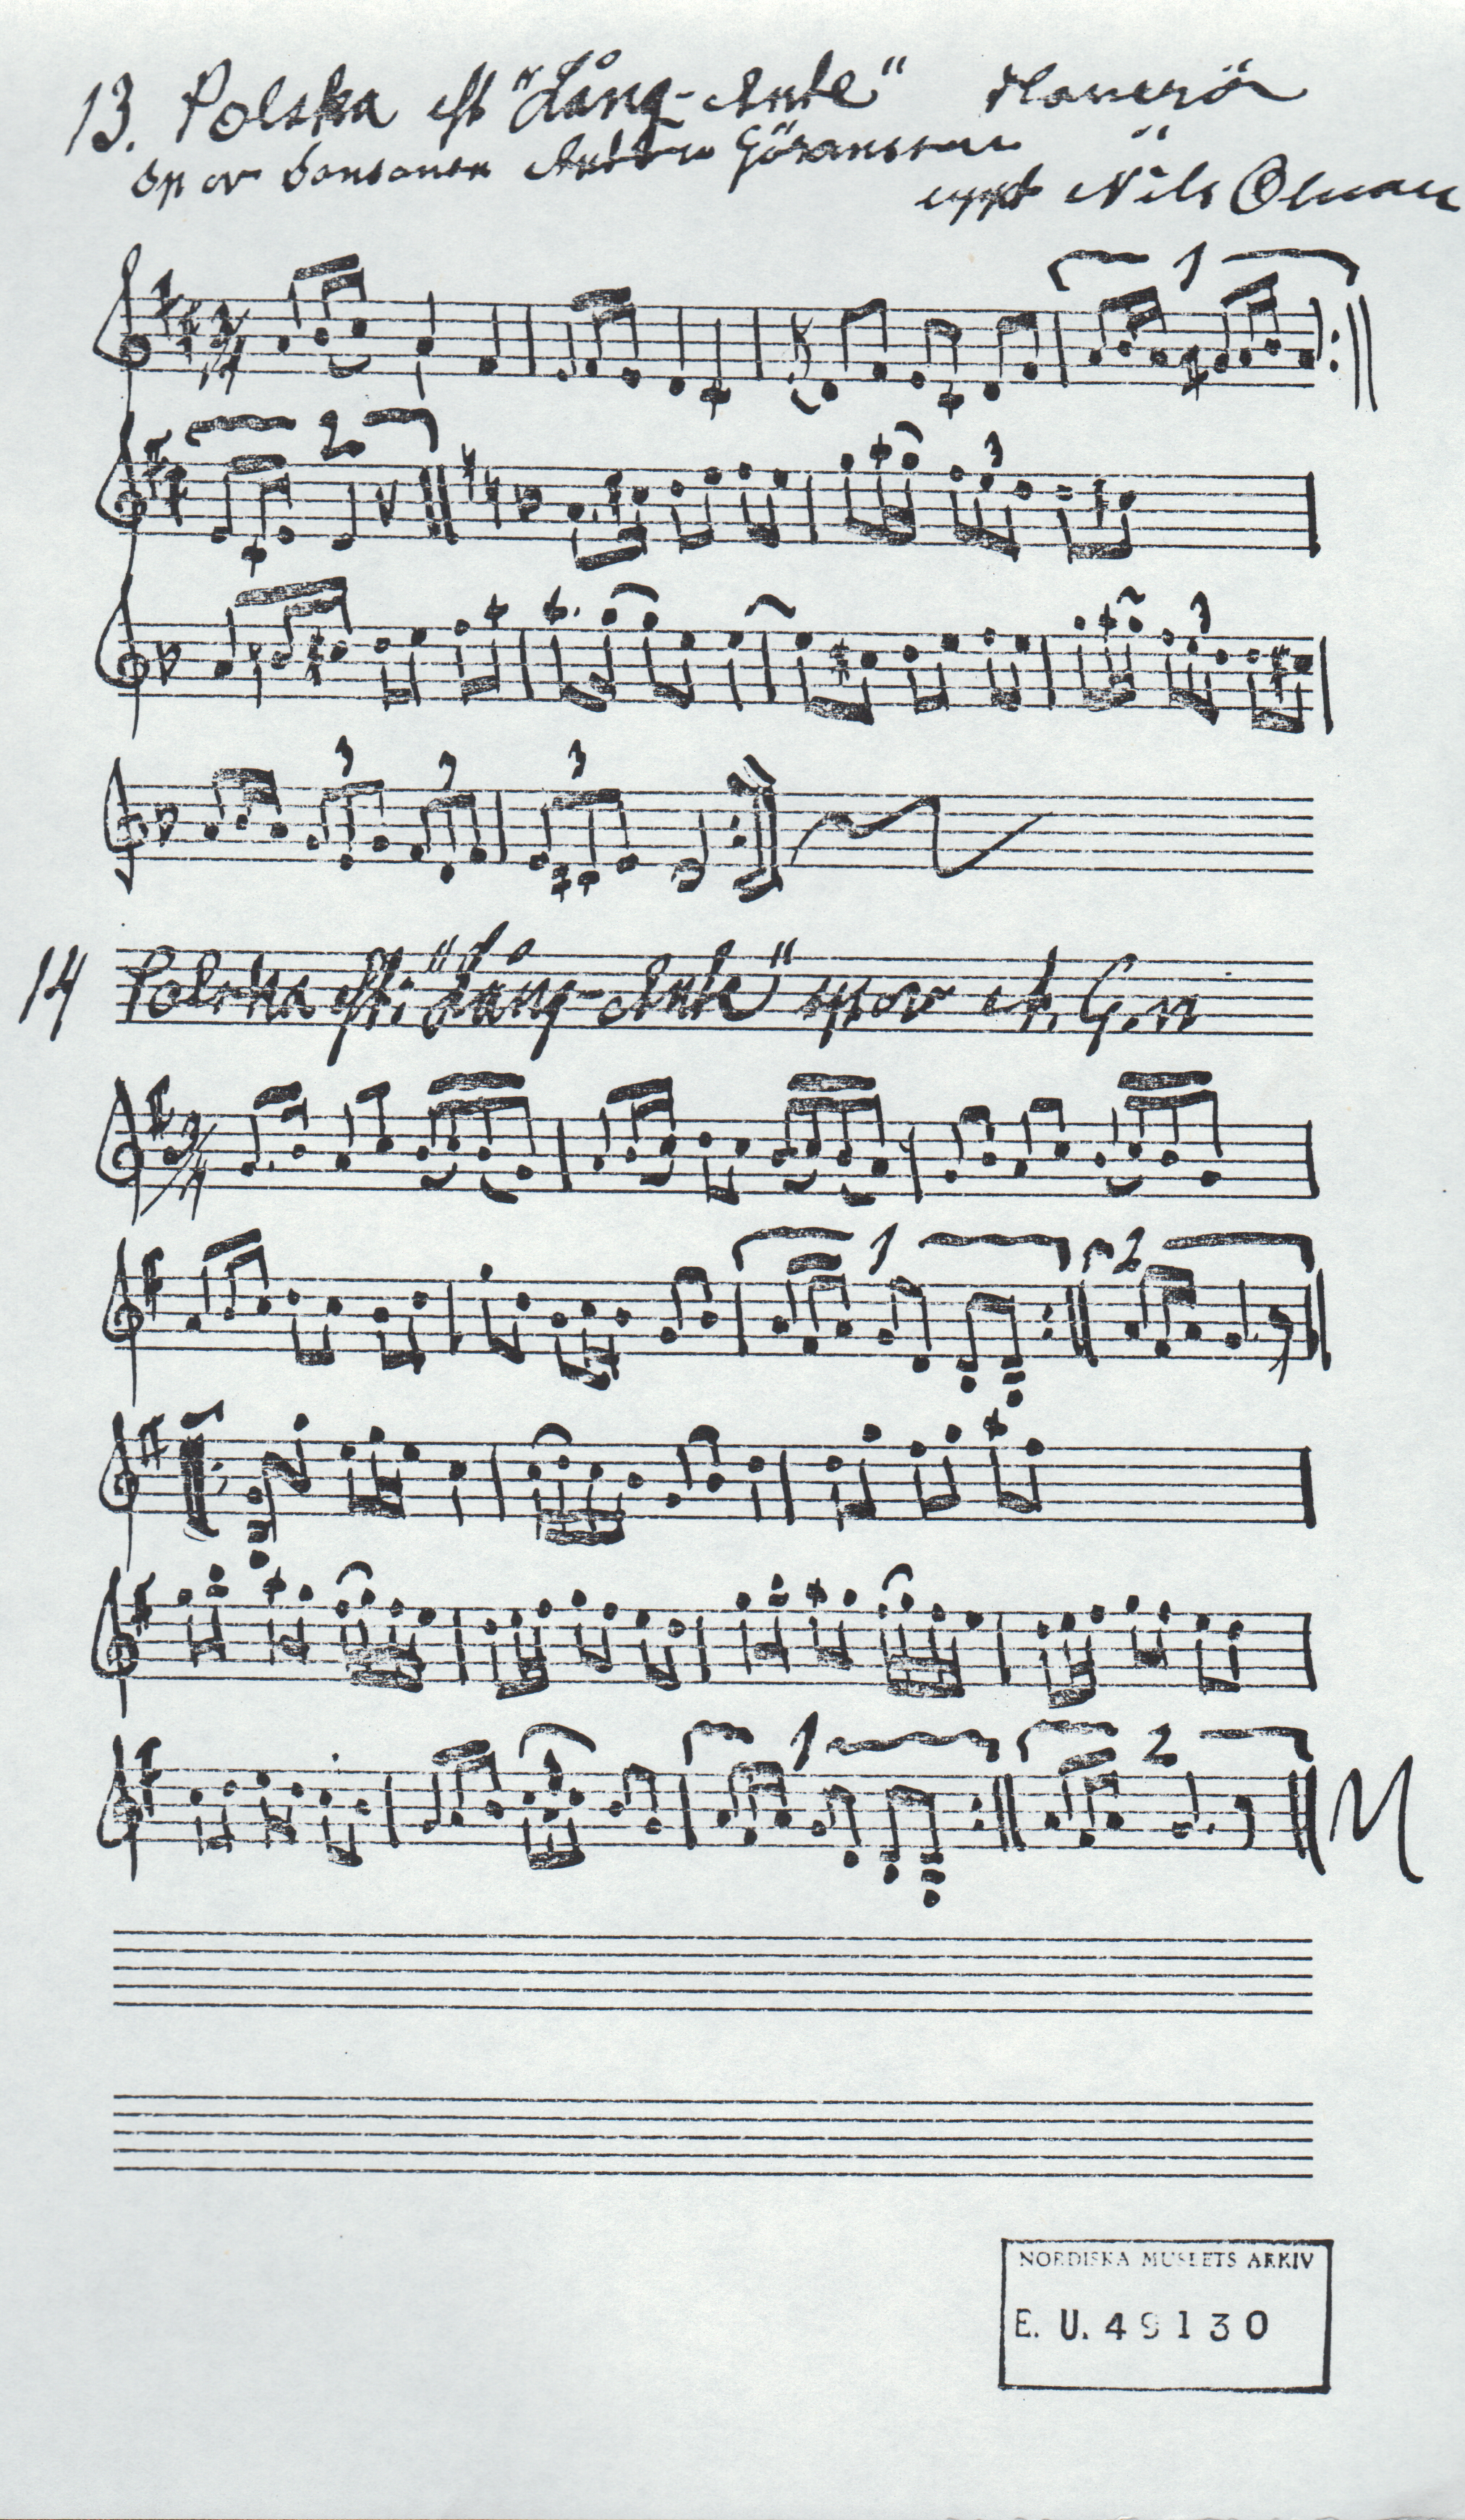 13. Polska eft "Lång-Ante" Haverö
Sp av sonsonen Göransson
uppt Nils Öman
3/4
1
2
3
3
3 3 3
14 Polska eft: "Lång-Ante" sp av A. G.n
3/4
1 2
1 2
NORDISKA MUSEETS ARKIV
E. U. 49130